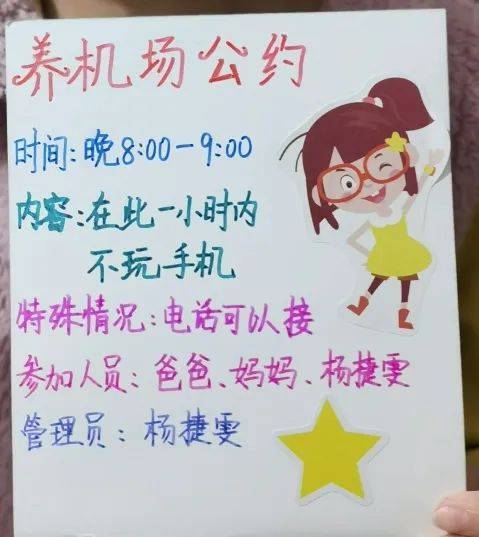 养机场公约
时间:晚8:00-9:00
内容:在此一小时内
不玩手机
特殊情况:电话可以接
参加人员:爸爸、妈妈、杨捷雯
管理员:杨捷雯